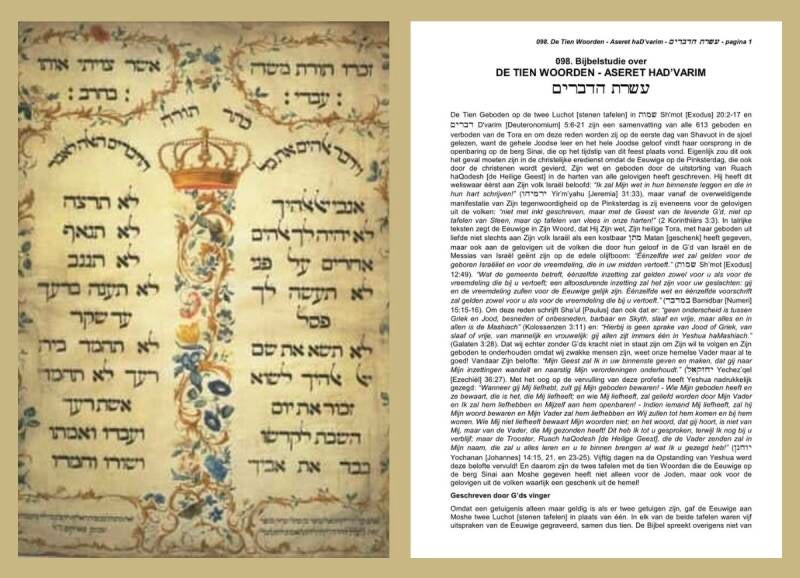 זכרו תורת משה
עבדי:
אשר צויתי אותו
בחרב:
כתר תורה
וידבר אלהים את כל
הדברים האלה לאמר
אנכי יי אלהיך
לא יהיה לך אלהים
אחרים על פני
לא תעשה לך
פסל
לא תשא את שם
יי אלהיך לשוא
זכור את יום
השבת לקדשו
כבד את אביך
לא תרצח
לא תנאף
לא תגנב
לא תענה ברעך
עד שקר
לא תחמד בית
רעך לא תחמד
אשת רעך
ועבדו ואמתו
ושורו וחמרו
098. De Tien Woorden - Aseret haD'varim - עשרת הדברים - pagina 1
098. Bijbelstudie over
DE TIEN WOORDEN - ASERET HAD'VARIM
עשרת הדברים
De Tien Geboden op de twee Luchot [stenen tafelen] in שמות Sh'mot [Exodus] 20:2-17 en
דברים D'varim [Deuteronomium] 5:6-21 zijn een samenvatting van alle 613 geboden en
verboden van de Tora en om deze reden worden zij op de eerste dag van Shavuot in de sjoel
gelezen, want de gehele Joodse leer en het hele Joodse geloof vindt haar oorsprong in de
openbaring op de berg Sinai, die op het tijdslip van dit feest plaats vond. Eigenlijk zou dit ook
het geval moeten zijn in de christelijke eredienst omdat de Eeuwige op de Pinksterdag, die ook
door de christenen wordt gevierd, Zijn wet en geboden door de uitstorting van Ruach
haQodesh [de Heilige Geest] in de harten van alle gelovigen heeft geschreven. Hij heeft dit
weliswaar éérst aan Zijn volk Israël beloofd: "Ik zal Mijn wet in hun binnenste leggen en die in
hun hart schrijven!" (ירמיהו Yir'm'yahu [Jeremia] 31:33), maar vanaf de overweldigende
manifestatie van Zijn tegenwoordigheid op de Pinksterdag is zij eveneens voor de gelovigen
uit de volken: "niet met inkt geschreven, maar met de Geest van de levende G'd, niet op
tafelen van Steen, maar op tafelen van vlees in onze harten!" (2 Korinthiërs 3:3). In talrijke
teksten zegt de Eeuwige in Zijn Woord, dat Hij Zijn wet, Zijn heilige Tora, met haar geboden uit
liefde niet slechts aan Zijn volk Israël als een kostbaar מתן Matan [geschenk] heeft gegeven,
maar ook aan de gelovigen uit de volken die door hun geloof in de G'd van Israël en de
Messias van Israël geënt zijn op de edele olijfboom: "Éénzelfde wet zal gelden voor de
geboren Israëliet en voor de vreemdeling, die in uw midden vertoeft." (שמות Sh'mot [Exodus]
12:49). "Wat de gemeente betreft, éénzelfde inzetting zal gelden zowel voor u als voor de
vreemdeling die bij u vertoeft; een altoosdurende inzetting zal het zijn voor uw geslachten: gij
en de vreemdeling zullen voor de Eeuwige gelijk zijn. Éénzelfde wet en éénzelfde voorschrift
zal gelden zowel voor u als voor de vreemdeling die bij u vertoeft." (במדבר Bamidbar [Numeri]
15:15-16). Om deze reden schrijft Sha'ul [Paulus] dan ook dat er: "geen onderscheid is tussen
Griek en Jood, besneden of onbesneden, barbaar en Skyth, slaaf en vrije, maar alles en in
allen is de Mashiach" (Kolossenzen 3:11) en: "Hierbij is geen sprake van Jood of Griek, van
slaaf of vrije, van mannelijk en vrouwelijk: gij allen zijt immers één in Yeshua haMashiach."
(Galaten 3:28). Dat wij echter zonder G'ds kracht niet in staat zijn om Zijn wil te volgen en Zijn
geboden te onderhouden omdat wij zwakke mensen zijn, weet onze hemelse Vader maar al te
goed! Vandaar Zijn belofte: "Mijn Geest zal Ik in uw binnenste geven en maken, dat gij naar
Mijn inzettingen wandelt en naarstig Mijn verordeningen onderhoudt." (יחזקאל Yechez'qel
[Ezechiël] 36:27). Met het oog op de vervulling van deze profetie heeft Yeshua nadrukkelijk
gezegd: "Wanneer gij Mij liefhebt, zult gij Mijn geboden bewaren! - Wie Mijn geboden heeft en
ze bewaart, die is het, die Mij liefheeft; en wie Mij liefheeft, zal geliefd worden door Mijn Vader
en Ik zal hem liefhebben en Mijzelf aan hem openbaren! - Indien iemand Mij liefheeft, zal hij
Mijn woord bewaren en Mijn Vader zal hem liefhebben en Wij zullen tot hem komen en bij hem
wonen. Wie Mij niet liefheeft bewaart Mijn woorden niet; en het woord, dat gij hoort, is niet van
Mij, maar van de Vader, die Mij gezonden heeft! Dit heb Ik tot u gesproken, terwijl Ik nog bij u
verblijf; maar de Trooster, Ruach haQodesh [de Heilige Geest], die de Vader zenden zal in
Mijn naam, die zal u alles leren en u te binnen brengen al wat Ik u gezegd heb!" (יוחנן
Yochanan [Johannes] 14:15, 21, en 23-25). Vijftig dagen na de Opstanding van Yeshua werd
deze belofte vervuld! En daarom zijn de twee tafelen met de tien Woorden die de Eeuwige op
de berg Sinai aan Moshe gegeven heeft niet alleen voor de Joden, maar ook voor de
gelovigen uit de volken waarlijk een geschenk uit de hemel!
Geschreven door G'ds vinger
Omdat een getuigenis alleen maar geldig is als er twee getuigen zijn, gaf de Eeuwige aan
Moshe twee Luchot [stenen tafelen] in plaats van één. In elk van de beide tafelen waren vijf
uitspraken van de Eeuwige gegraveerd, samen dus tien. De Bijbel spreekt overigens niet van